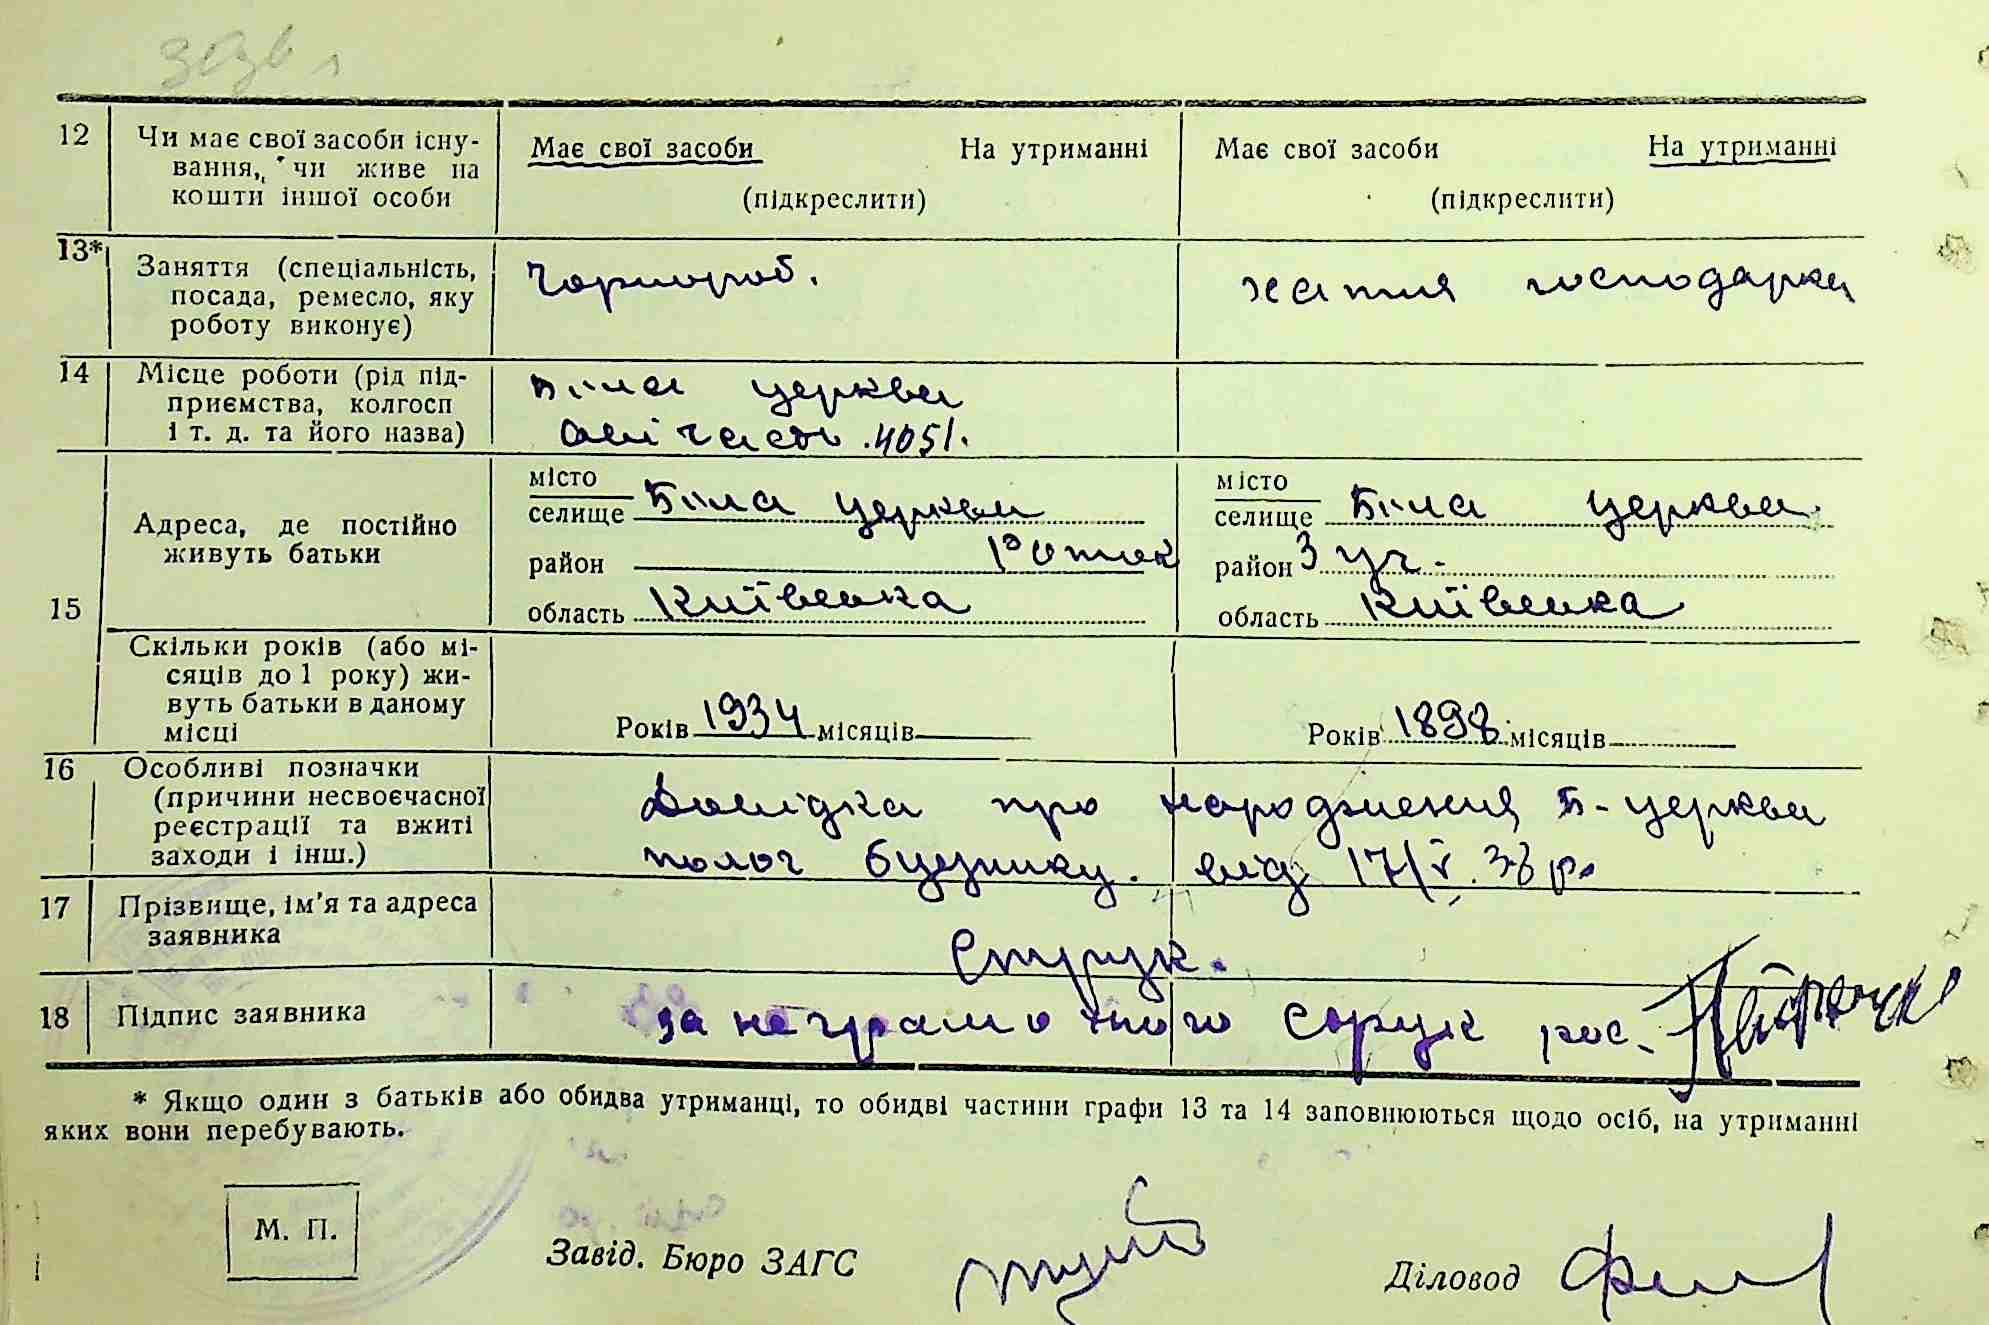 12
Чи має свої засоби існу-
вання, чи живе на
кошти іншої особи
Має свої засоби На утриманні
(підкреслити)
Має свої засоби На утриманні
(підкреслити)
13*
Заняття (спеціальність,
посада, ремесло, яку
роботу виконує)
Чорнороб.
хатня господарка
14
Місце роботи (рід під-
приємства, колгосп
і т. д. та його назва)
Біла церква
часть 4051.
15
Адреса, де постійно
живуть батьки
місто
селище Біла церква
район Роток
область Київська
місто
селище Біла церква
район 3 уч.
область Київська
Скільки років (або мі-
сяців до 1 року) жи-
вуть батьки в даному
місці
Років 1934 місяців
Років 1898 місяців
16
Особливі позначки
(причини несвоєчасної
реєстрації та вжиті
заходи і інш.)
Довідка про народження Б-церква
полог будинку. від 17/V. 38 р.
17
Прізвище, ім'я та адреса
заявника
Струк.
18
Підпис заявника
за неграмотного Струк рос.
* Якщо один з батьків або обидва утриманці, то обидві частини графи 13 та 14 заповнюються щодо осіб, на утриманні
яких вони перебувають.
М. П.
Завід. Бюро ЗАГС
Діловод